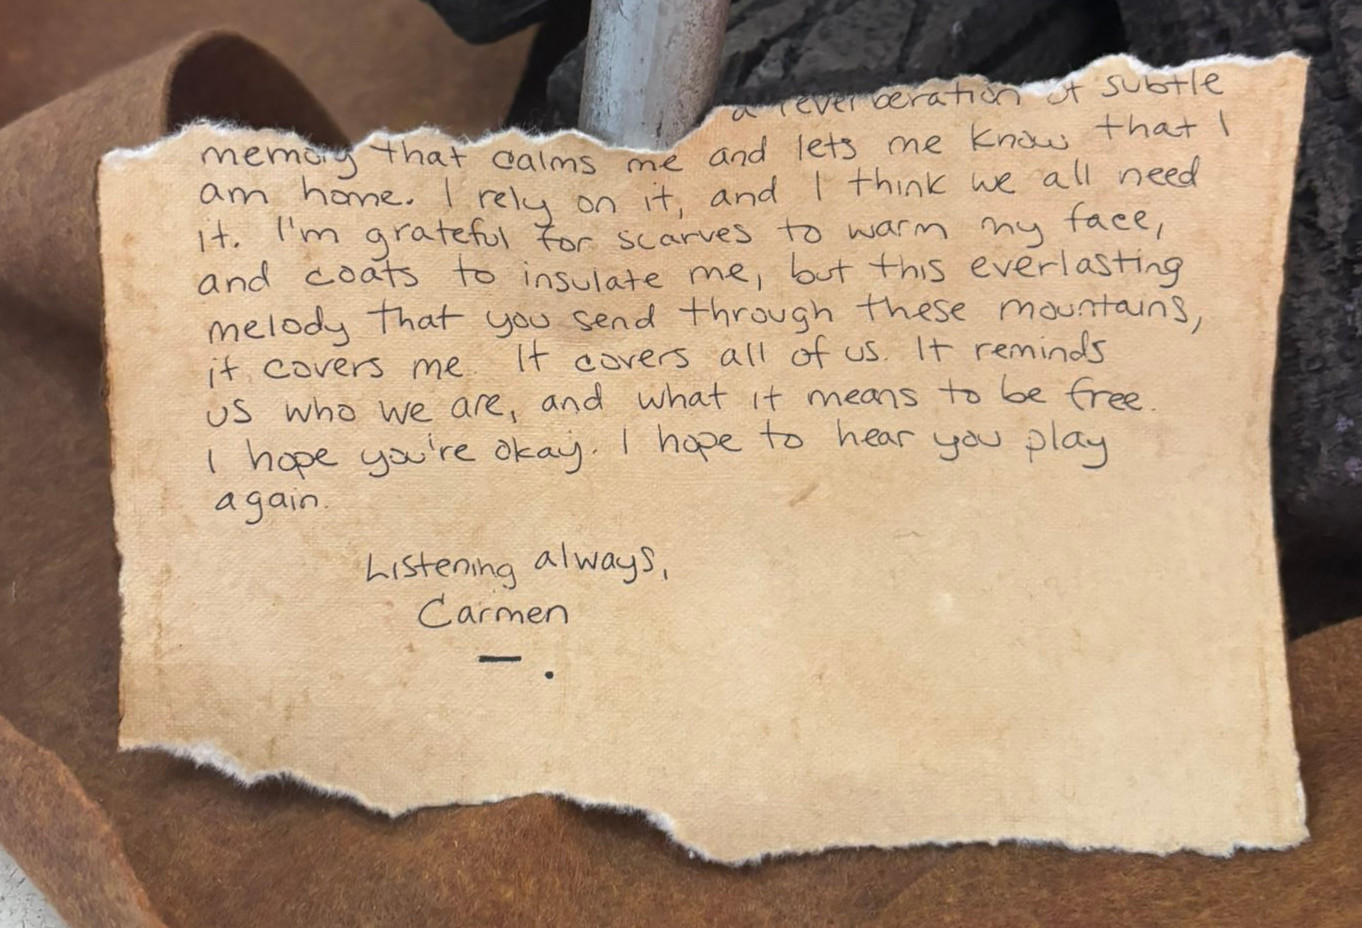 a reverberation of subtle
memory that calms me and lets me know that I
am home. I rely on it, and I think we all need
it. I'm grateful for scarves to warm my face,
and coats to insulate me, but this everlasting
melody that you send through these mountains,
it covers me. It covers all of us. It reminds
us who we are, and what it means to be free.
I hope you're okay. I hope to hear you play
again.
Listening always,
Carmen
— .